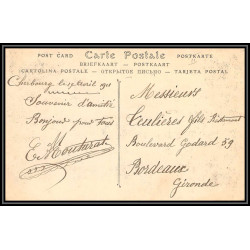 POST CARD Carte Postale POSTKARTE
BRIEFKAART POSTKAART
CARTOLINA POSTALE TARJETA POSTAL
Cherbourg le Avril
Souvenir d'amitié
Bonjour pour tous
E.
Messieurs
fils
Boulevard Godard 59
Bordeaux
Gironde